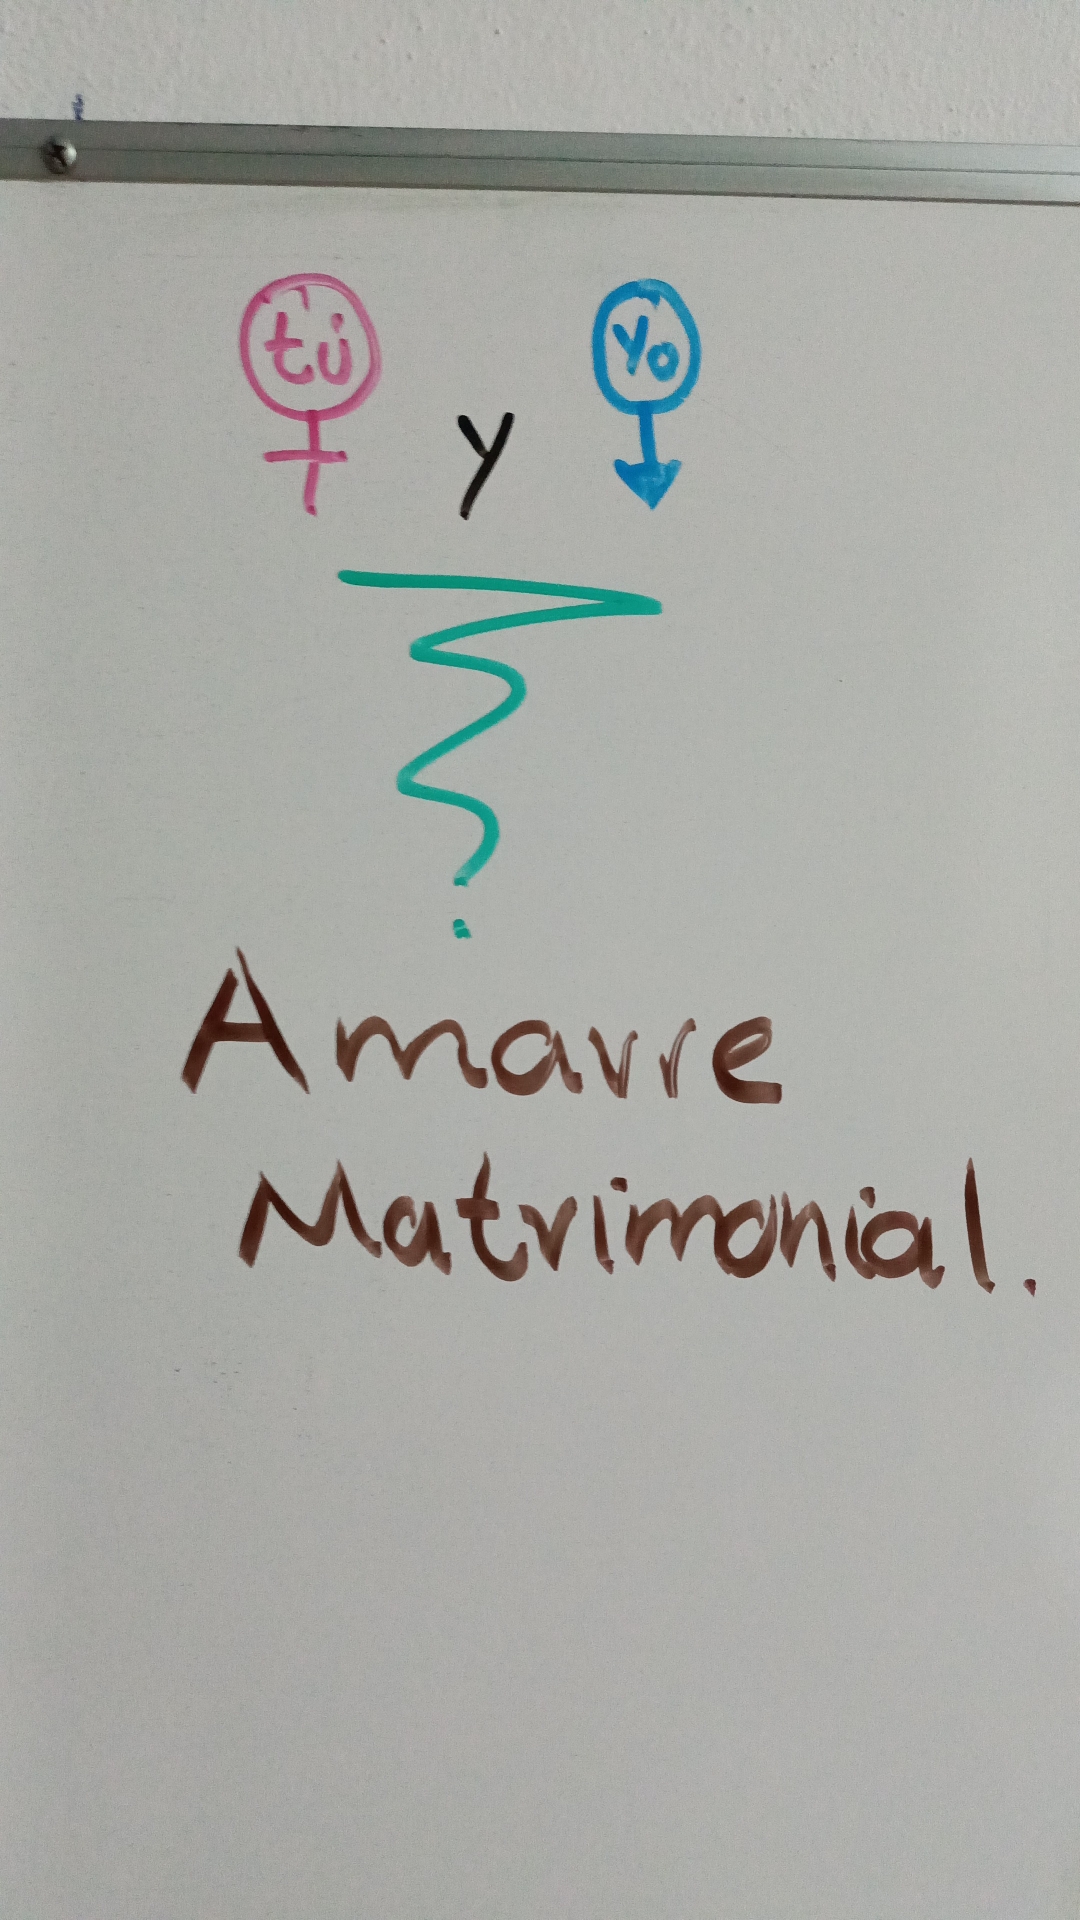 tú y yo
Amarre
Matrimonial.